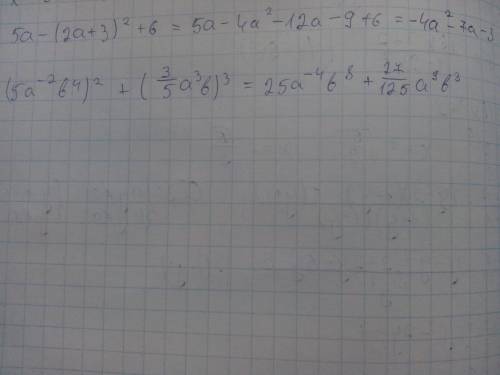 5a-(2a+3)²+6 = 5a-4a²-12a-9+6 = -4a²-7a-3
(5a⁻²b⁴)² + (3/5 a³b)³ = 25a⁻⁴b⁸ + 27/125 a⁹b³